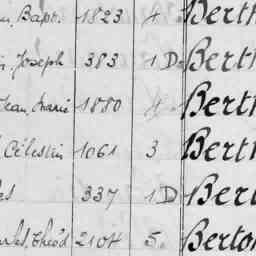 Bapt. 1823 4 Berth
Joseph 383 1D. Berth
Jean, Marie 1880 4 Berth
Célestin 1061 3 Berth
es 337 1D Bert
arles, Théod 2104 5. Berto